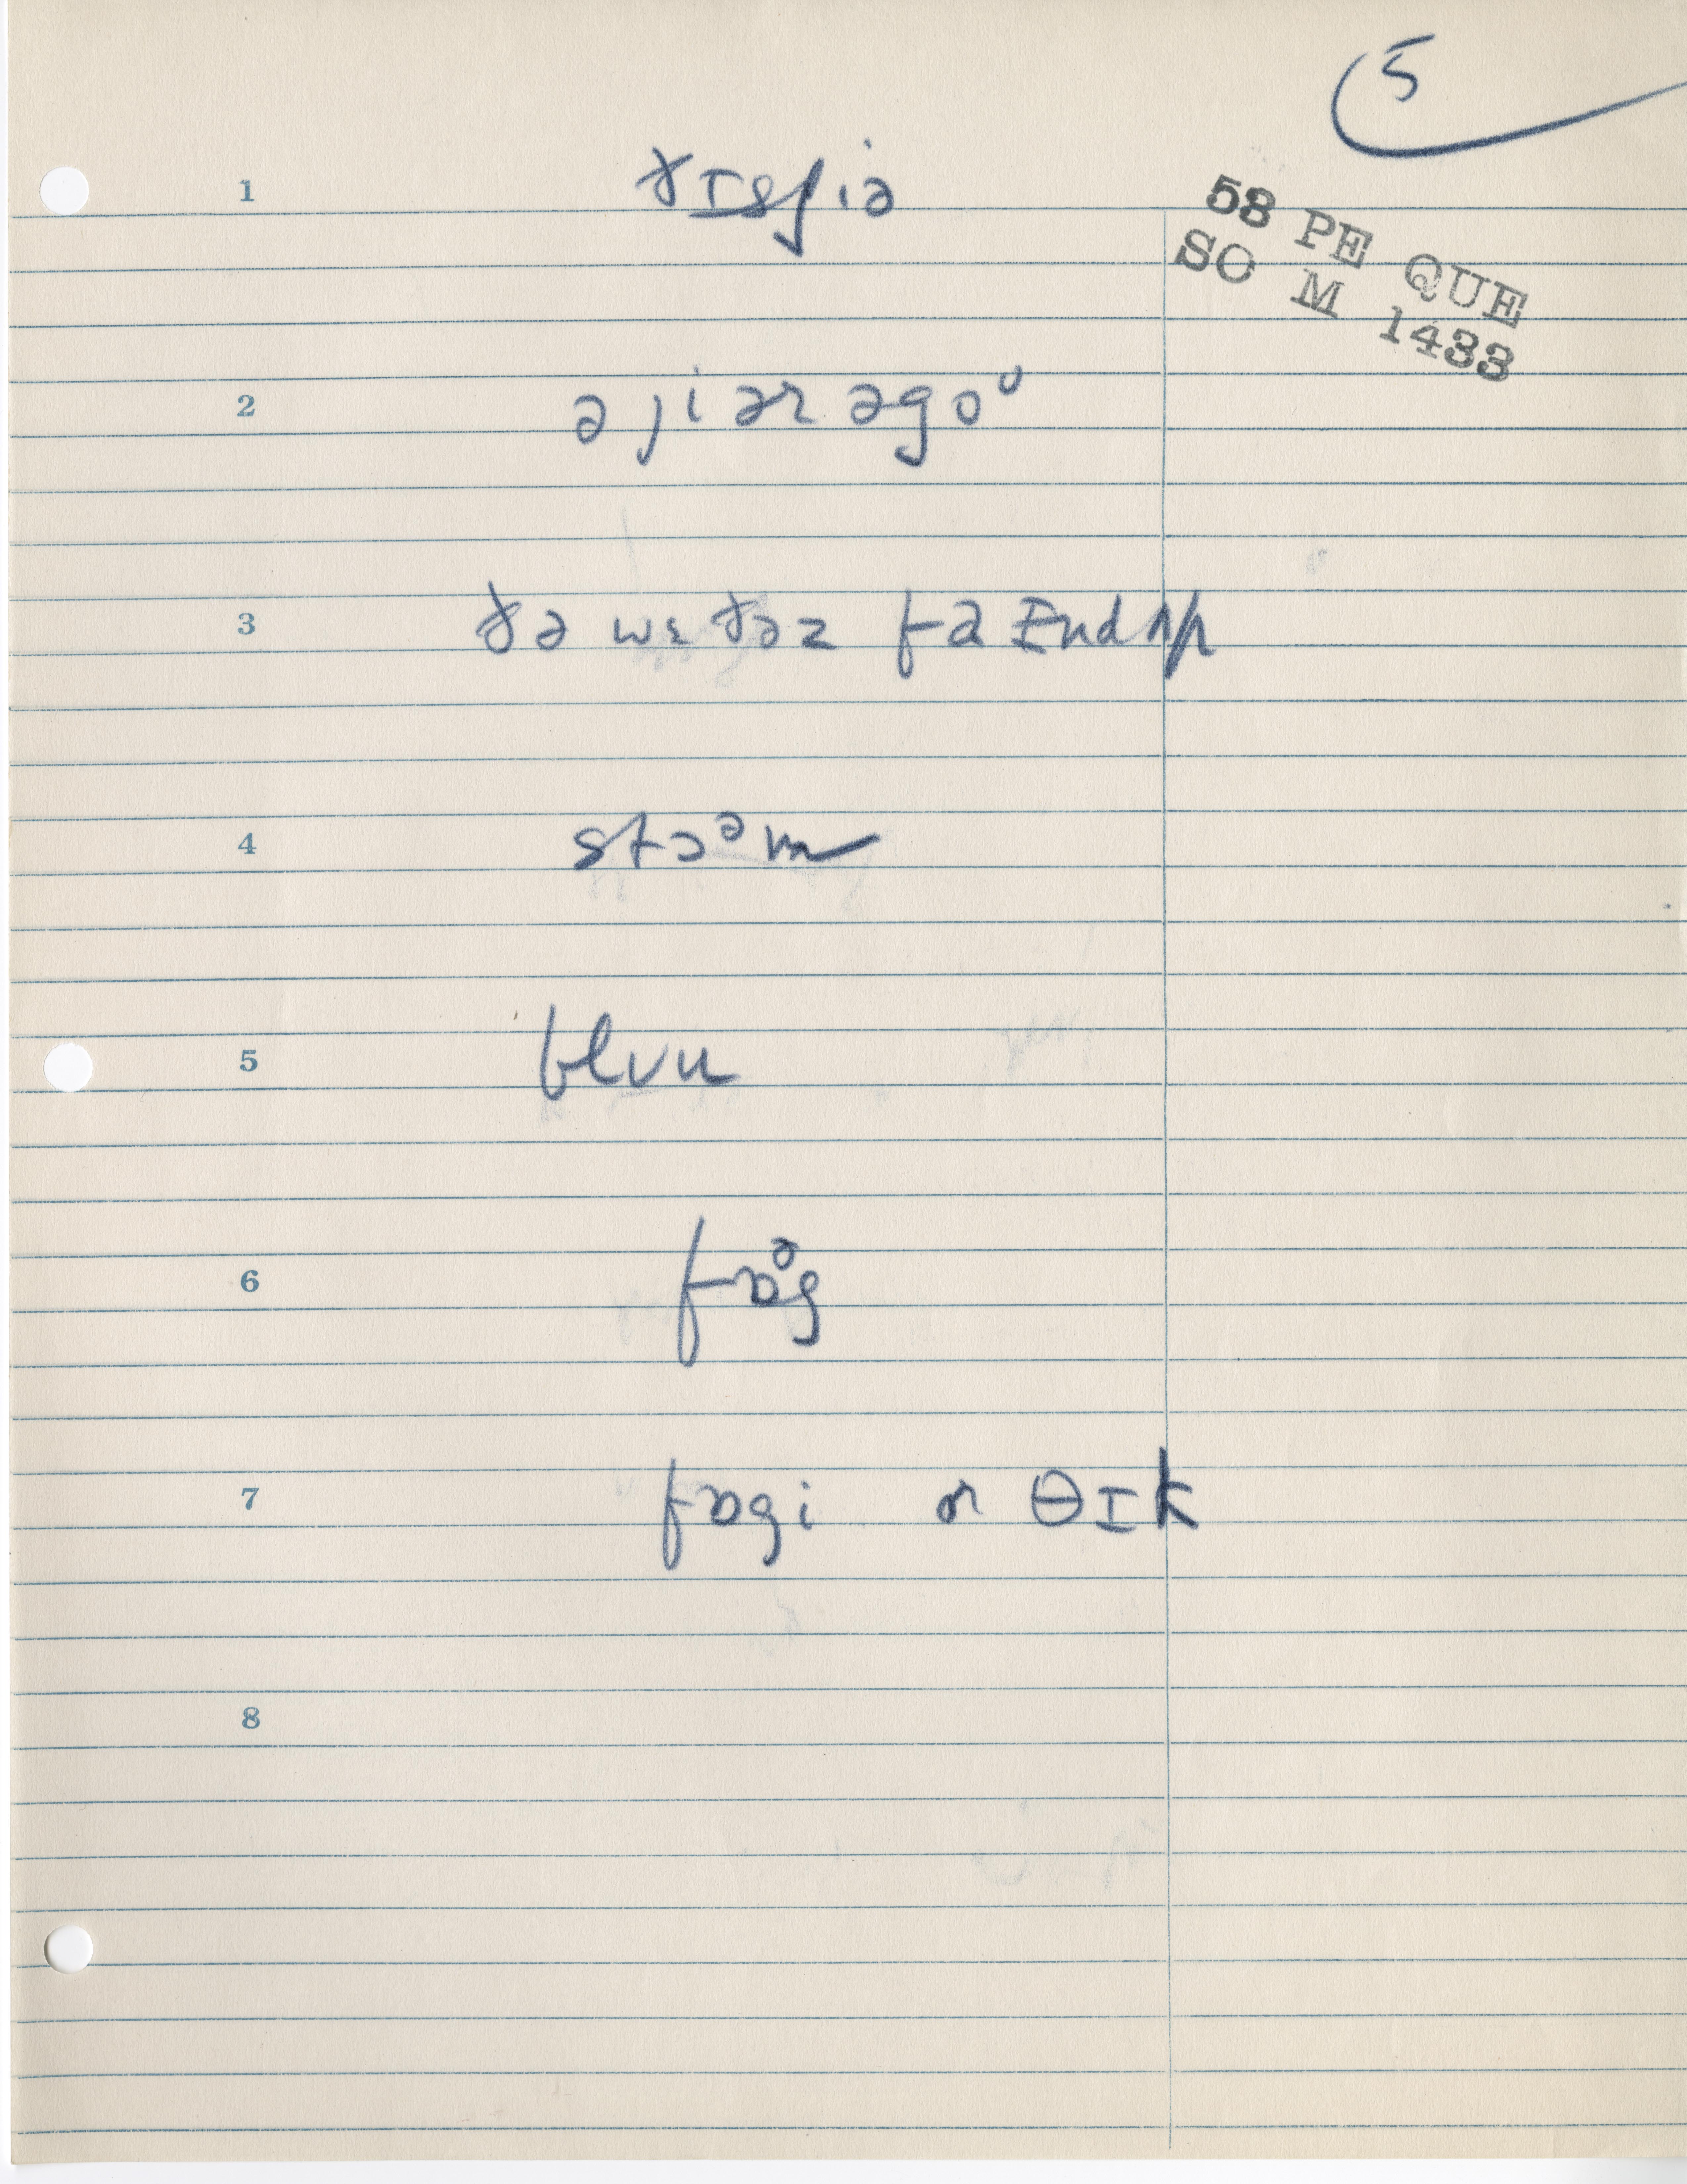 5
58 PE QUE
SO M 1433
1 ðɪsjiə
2 əjiər əgoᶷ
3 ðə wɛðəz faɪnd ʌp
4 stɔᵊm
5 blʊu
6 fɒᵊg
7 fɒgi or θɪk
8